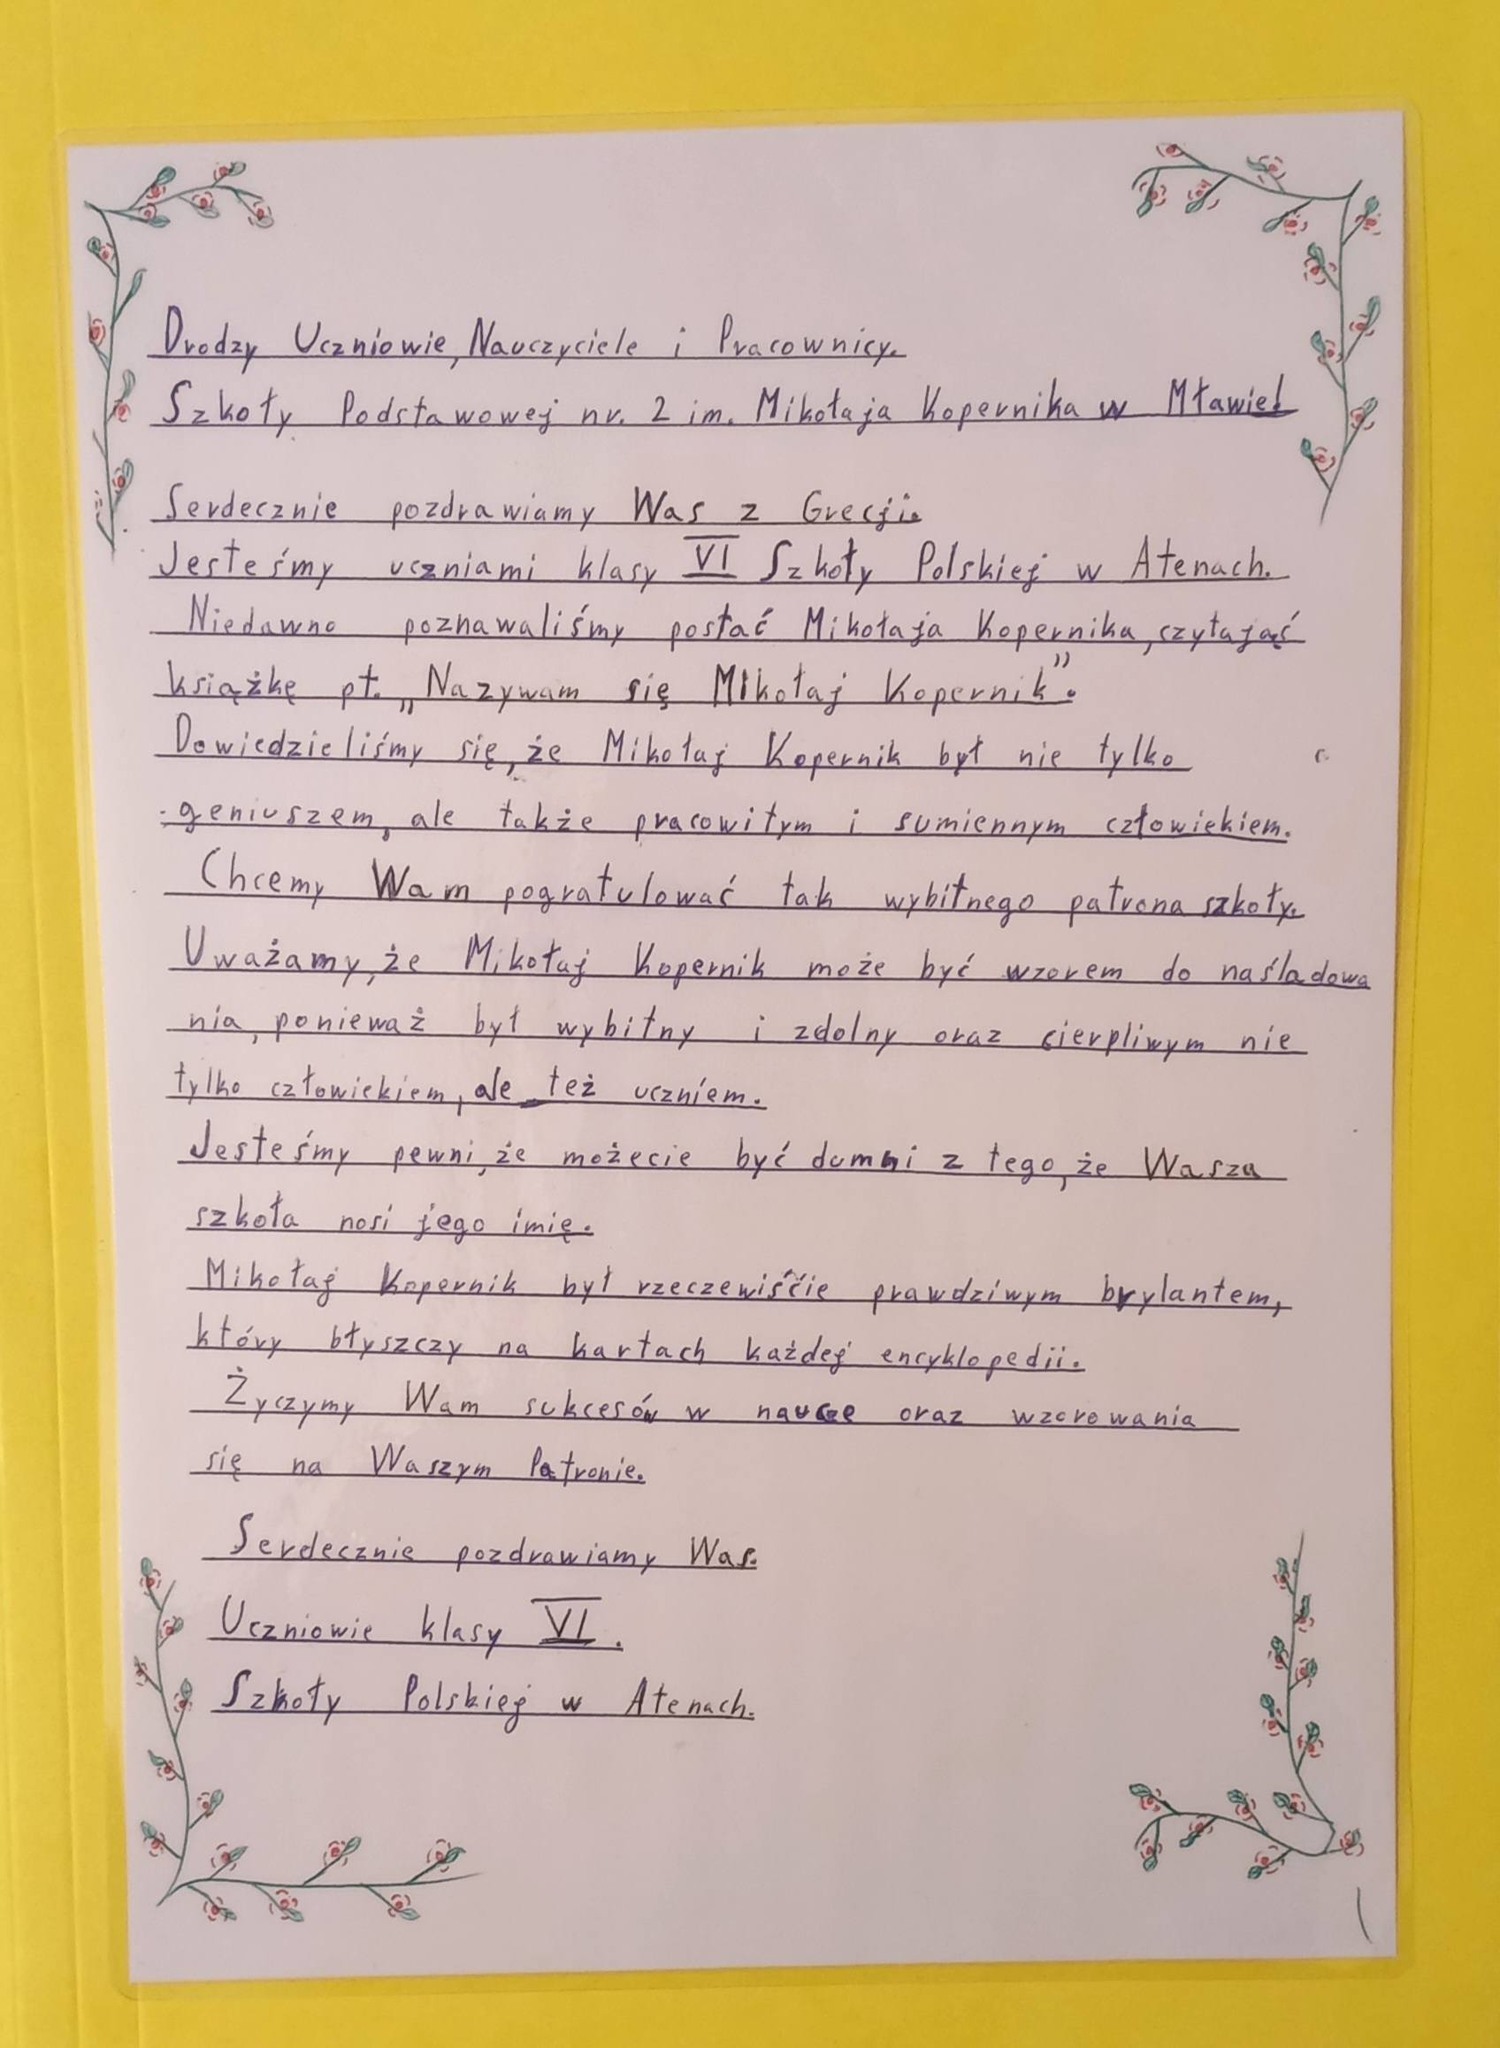 Drodzy Uczniowie, Nauczyciele i Pracownicy.
Szkoły Podstawowej nr. 2 im. Mikołaja Kopernika w Mławie!
Serdecznie pozdrawiamy Was z Grecji.
Jesteśmy uczniami klasy VI Szkoły Polskiej w Atenach.
Niedawno poznawaliśmy postać Mikołaja Kopernika, czytająć
książkę pt. „Nazywam się Mikołaj Kopernik”.
Dowiedzieliśmy się, że Mikołaj Kopernik był nie tylko
geniuszem, ale także pracowitym i sumiennym człowiekiem.
Chcemy Wam pogratulować tak wybitnego patrona szkoły.
Uważamy, że Mikołaj Kopernik może być wzorem do naśladowa
nia, ponieważ był wybitny i zdolny oraz cierpliwym nie
tylko człowiekiem, ale też uczniem.
Jesteśmy pewni, że możecie być dumni z tego, że Wasza
szkoła nosi jego imię.
Mikołaj Kopernik był rzeczewiśćie prawdziwym brylantem,
który błyszczy na kartach każdej encyklopedii.
Życzymy Wam sukcesów w nauce oraz wzorowania
się na Waszym Patronie.
Serdecznie pozdrawiamy Was.
Uczniowie klasy VI.
Szkoły Polskiej w Atenach.